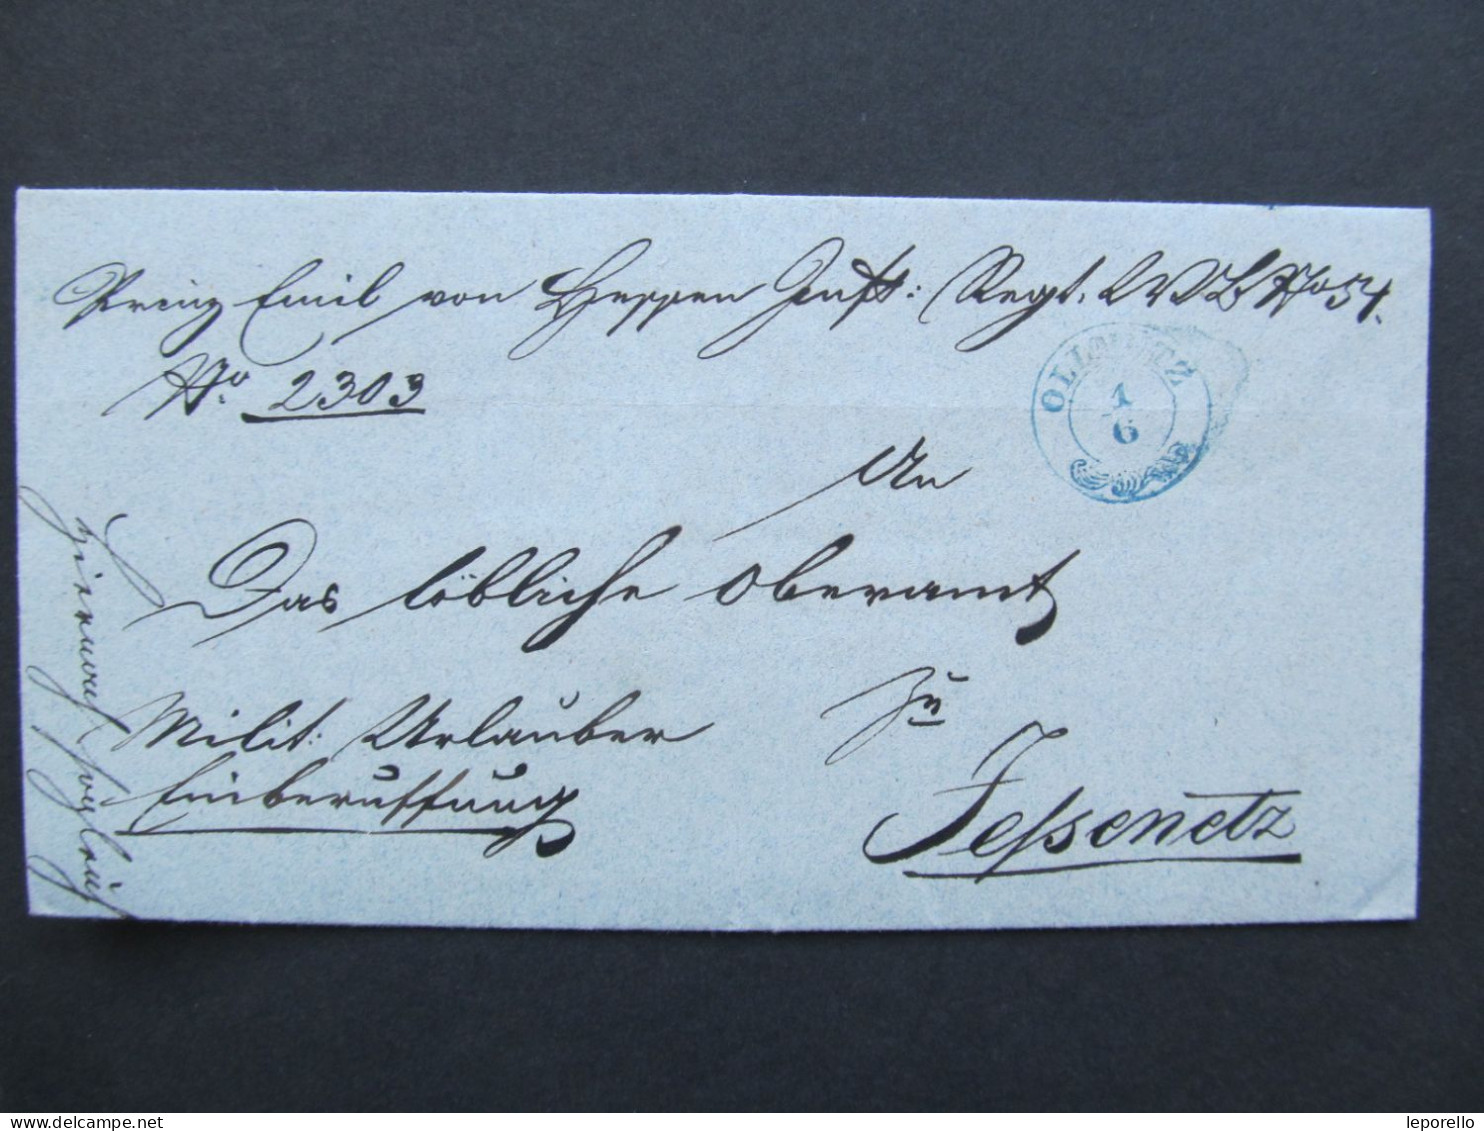 Prinz Emil von Hessen Inft: Regt. No 54.
No. 2303
OLLMÜTZ
1
6
An
Das löbliche Oberamt
zu
Milit: Urlauber
Einberuffung
Jessenetz
delcampe.net
leporello